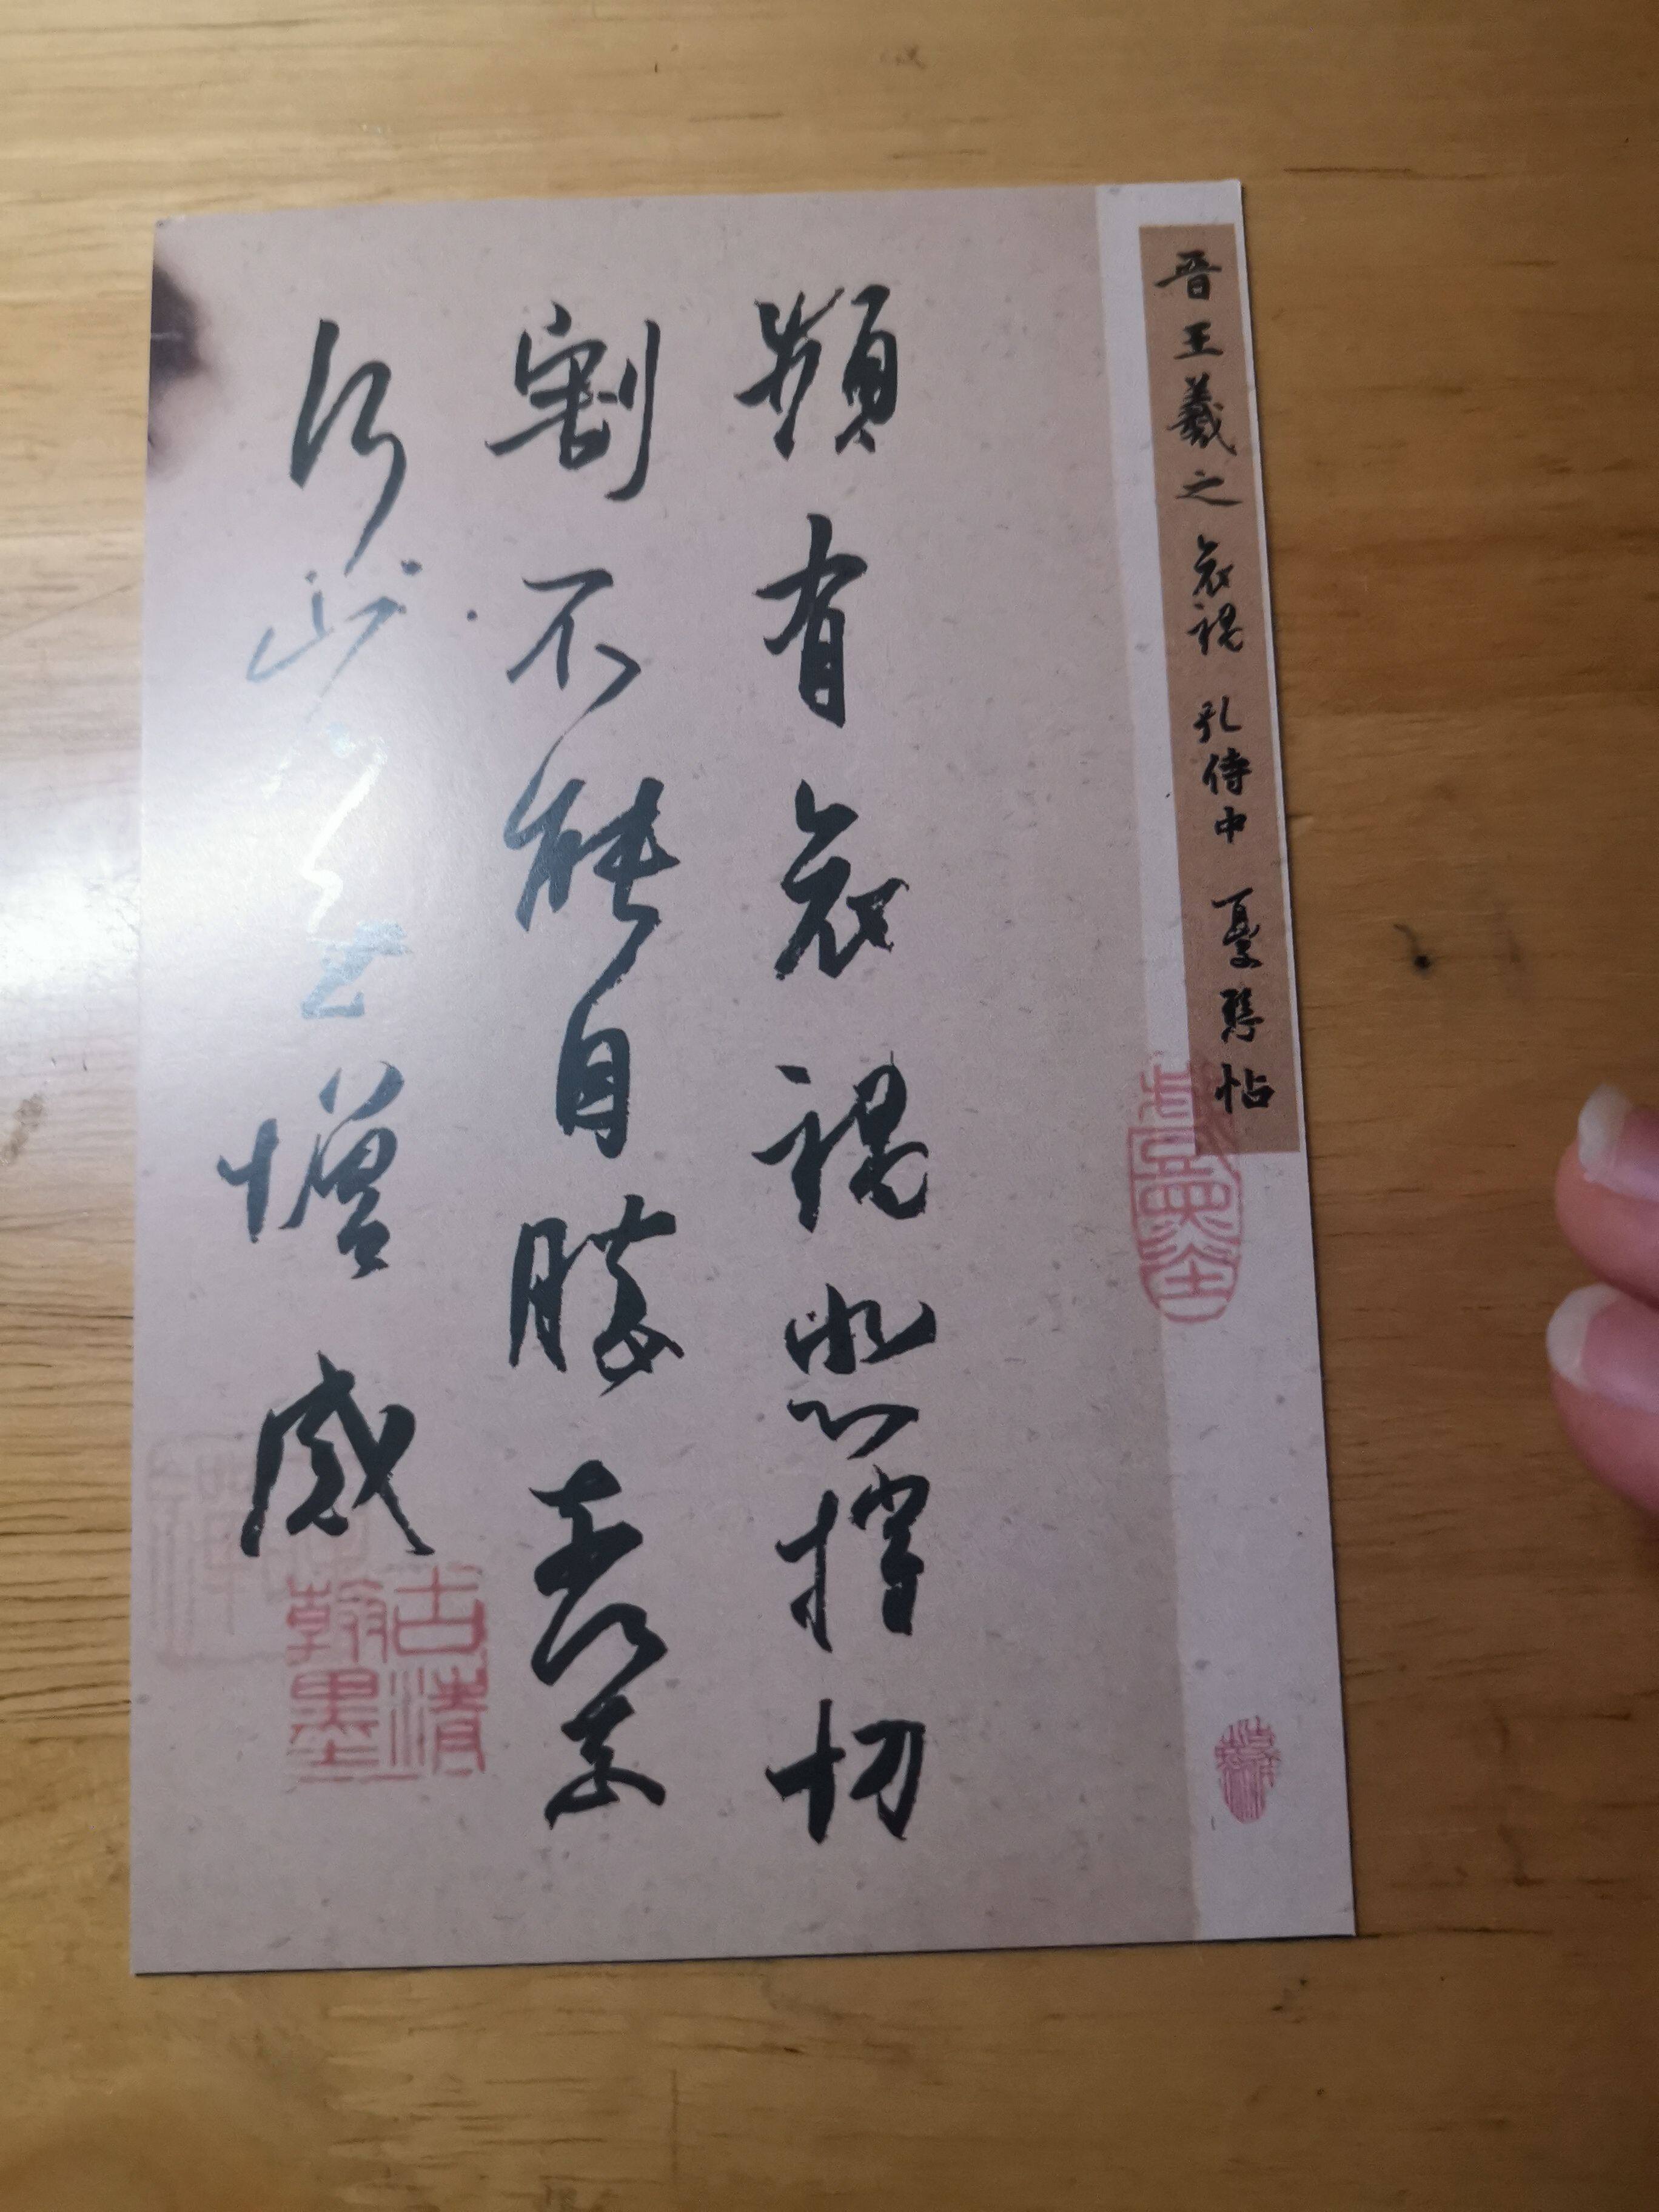 晉王羲之哀禍孔侍中憂懸帖
頻有哀禍悲摧切
割不能自勝奈何奈
何省慰增感
古清
翰墨